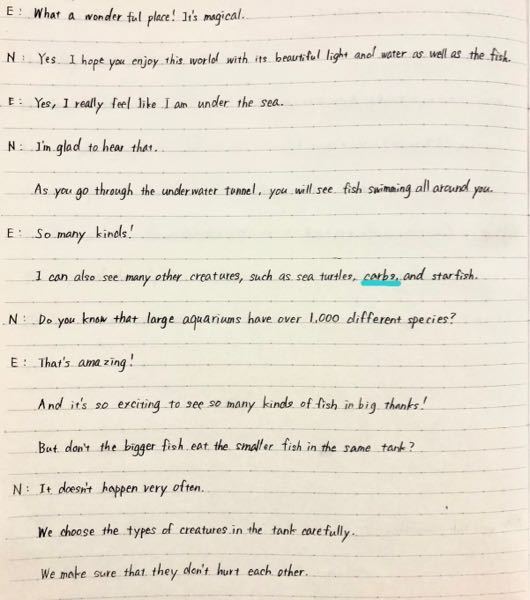 E: What a wonder ful place! It's magical.
N: Yes. I hope you enjoy this world with its beautiful light and water as well as the fish.
E: Yes, I really feel like I am under the sea.
N: I'm glad to hear that.
As you go through the underwater tunnel, you will see fish swimming all around you.
E: So many kinds!
I can also see many other creatures, such as sea turtles, carbs, and starfish.
N: Do you know that large aquariums have over 1,000 different species?
E: That's amazing!
And it's so exciting to see so many kinds of fish in big thanks!
But don't the bigger fish eat the smaller fish in the same tank?
N: It doesn't happen very often.
We choose the types of creatures in the tank carefully.
We make sure that they don't hurt each other.